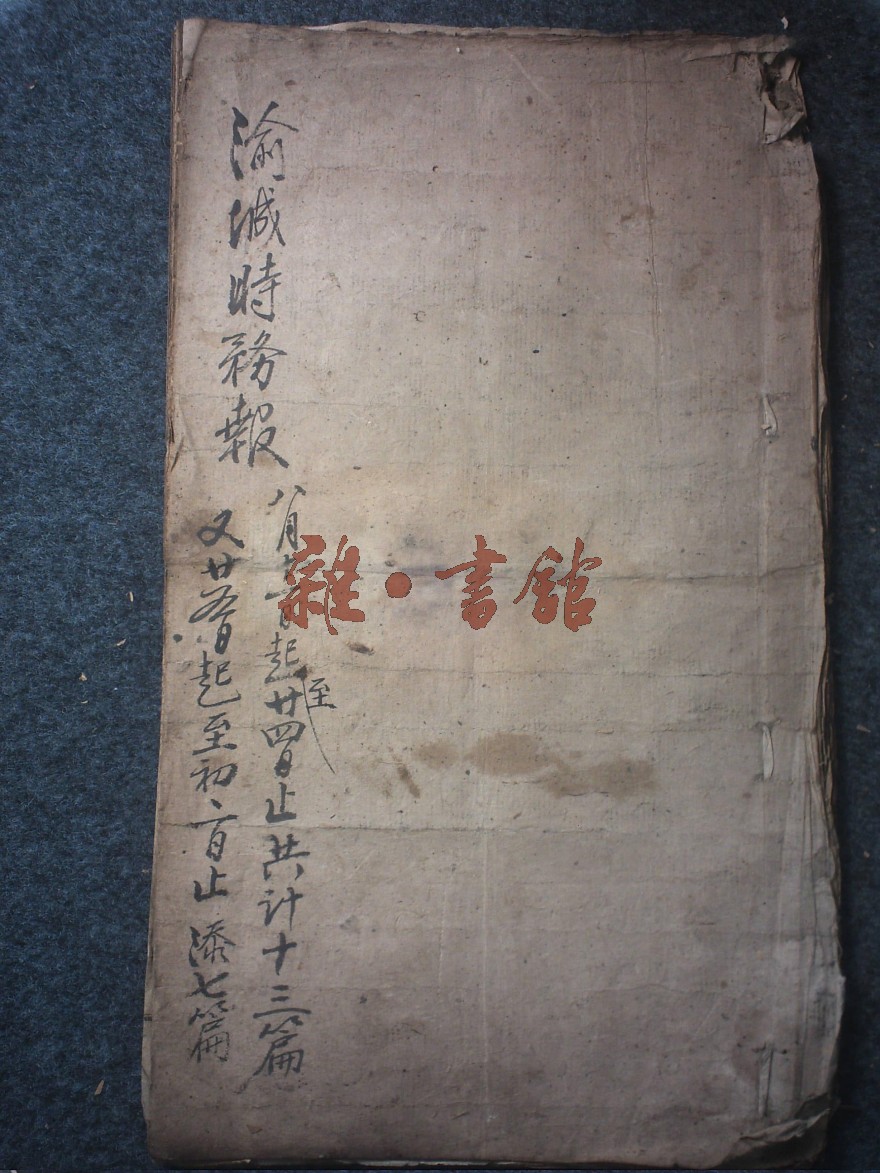 渝城時務報
八月廿日起至廿四日止共計十三篇
又廿五日起至初二日止添七篇
雜·書館